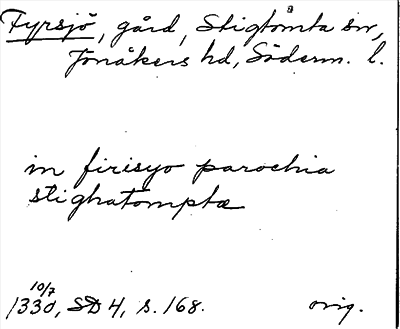 Fyrsjö, gård, Stigtomta sn,
Jönåkers hd, Söderm. l.
in firisyo parochia
stighatomptæ
10/7
1330, SD 4, s. 168. orig.